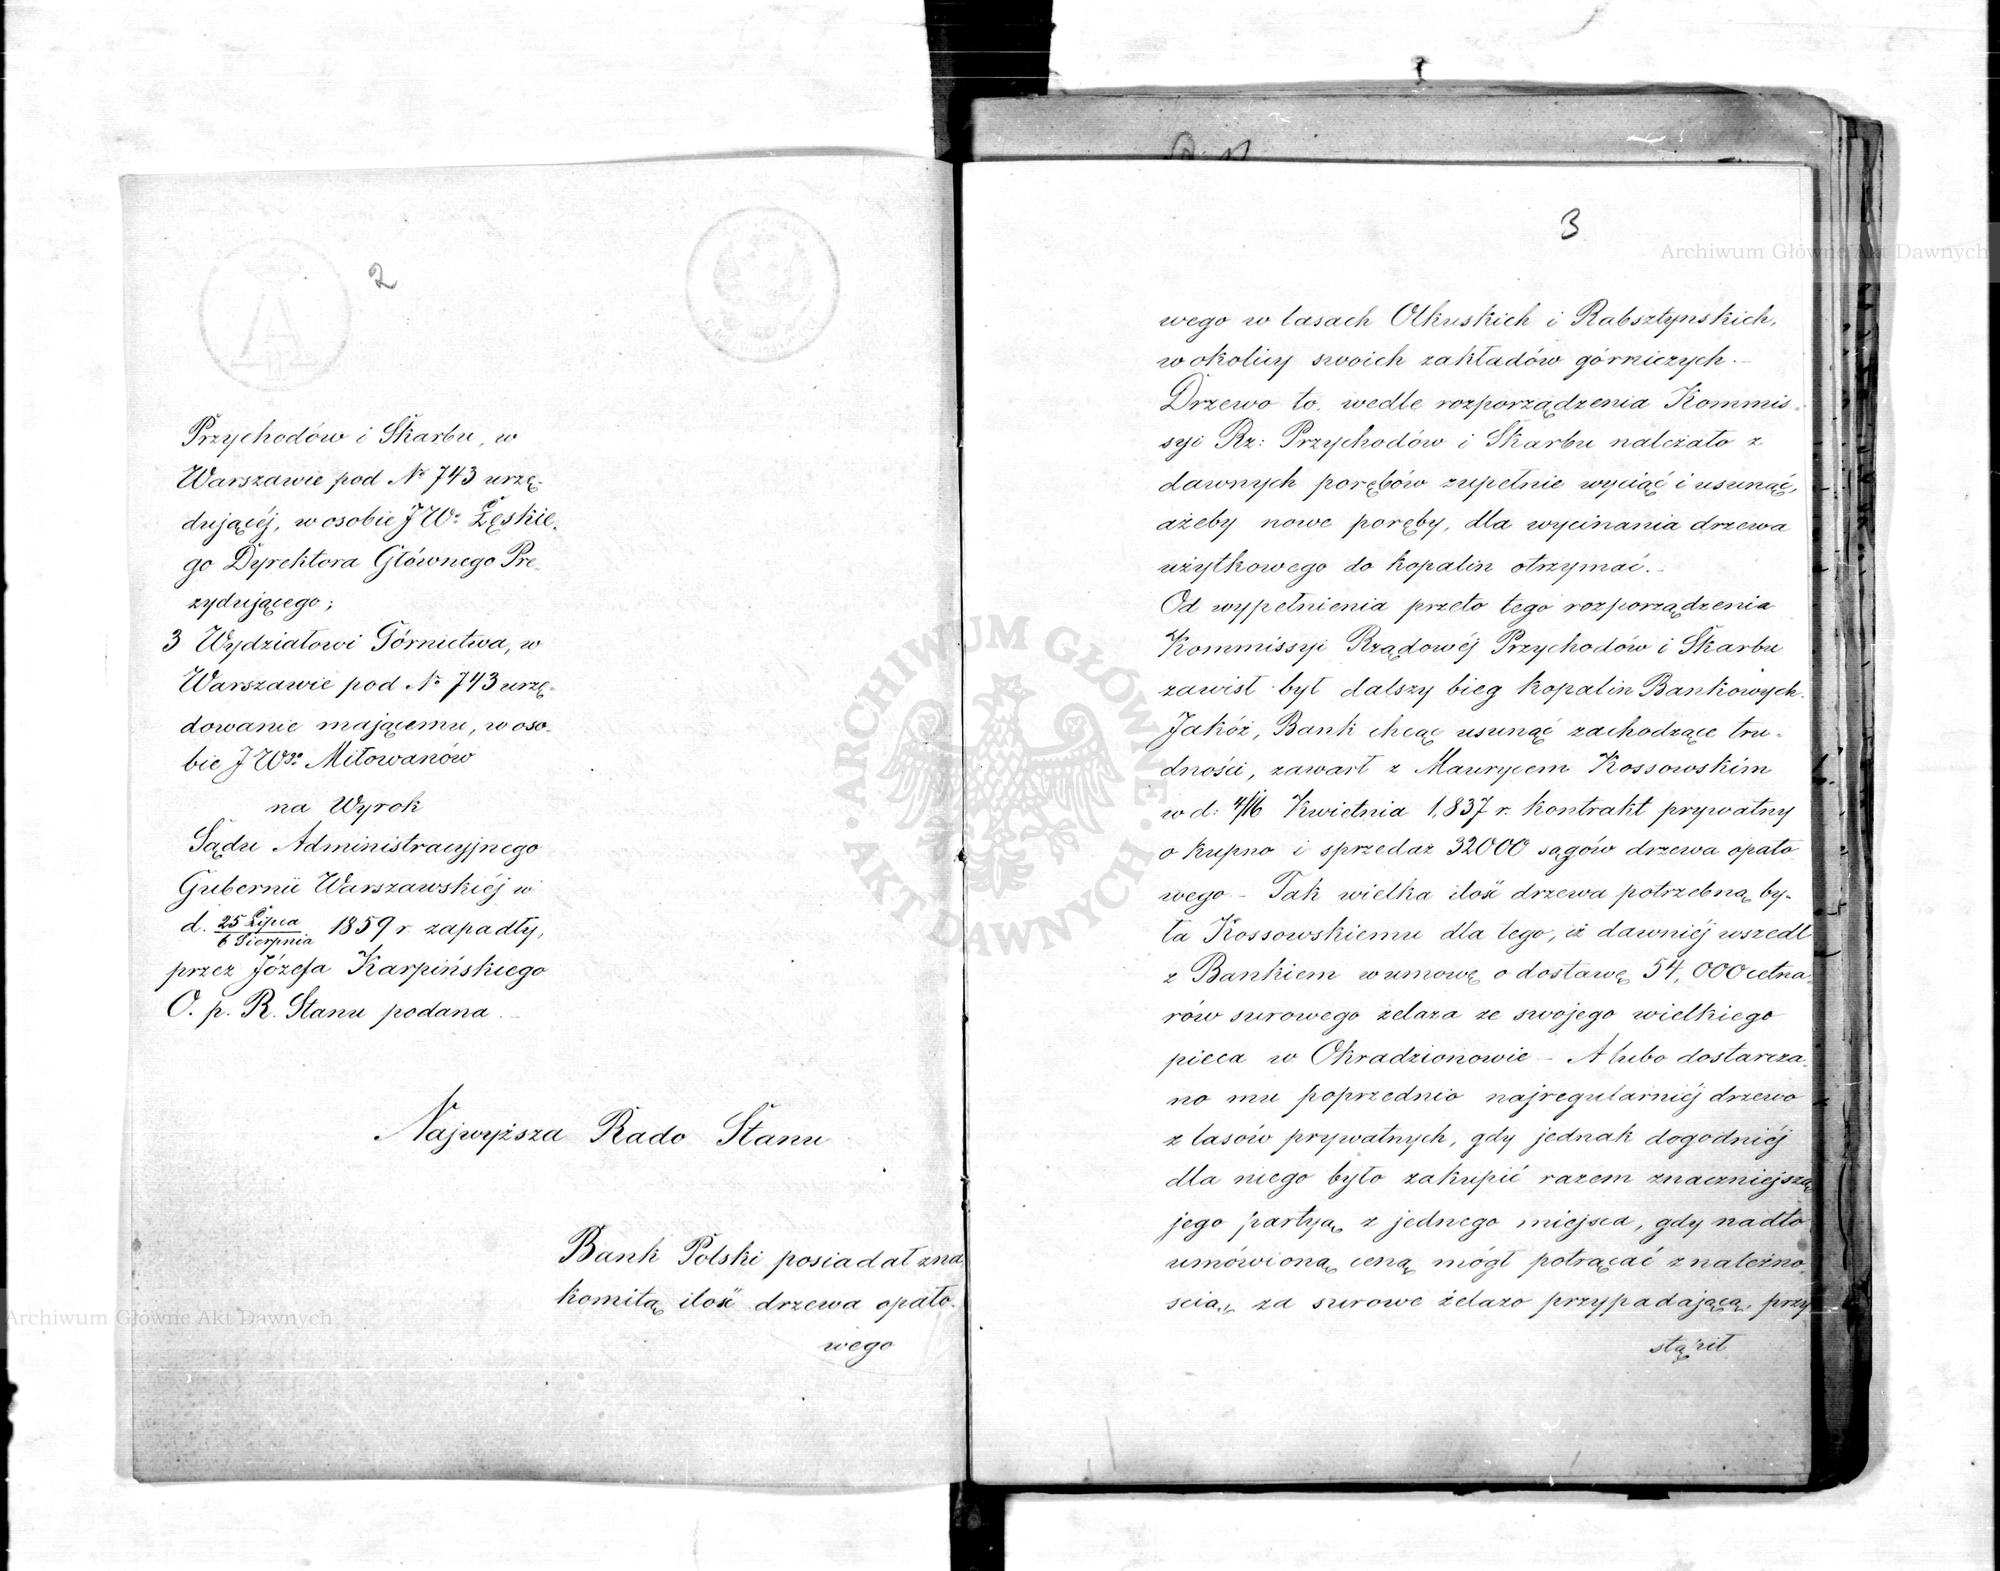 2
Przychodów i Skarbu, w
Warszawie pod № 743 urzę-
dującéj, w osobie JWo Łęskie-
go Dyrektora Głównego Pre-
zydującego;
3 Wydziałowi Górnictwa, w
Warszawie pod № 743 urzę-
dowanie mającemu, w oso-
bie JWgo Miłowanów
na Wyrok
Sądu Administracyjnego
Gubernii Warszawskiéj w
d. 25 Lipca/6 Sierpnia 1859 r. zapadły,
przez Józefa Karpińskiego
O. p. R. Stanu podana
Najwyższa Rado Stanu
Bank Polski posiadał zna
komitą ilość drzewa opało-
wego
3
wego w lasach Olkuskich i Rabsztynskich,
w okolicy swoich zakładów górniczych. –
Drzewo to, wedle rozporządzenia Kommis-
syi Rz: Przychodów i Skarbu należało z
dawnych porębów zupełnie wyciąć i usunąć,
ażeby nowe poręby, dla wycinania drzewa
użytkowego do kopalin otrzymać. –
Od wypełnienia przeto tego rozporządzenia
Kommissyi Rządowéj Przychodów i Skarbu
zawisł był dalszy bieg kopalin Bankowych.
Jakóż, Bank chcąc usunąć zachodzące tru-
dności, zawarł z Maurycem Kossowskim
w d: 4/16 Kwietnia 1,837 r. kontrakt prywatny
o kupno i sprzedaż 32000 sągów drzewa opało
wego – Tak wielka ilość drzewa potrzebną by-
ła Kossowskiemu dla tego, iż dawniéj wszedł
z Bankiem w umowę o dostawę 54,000 cetna-
rów surowego żelaza ze swojego wielkiego
pieca w Okradzionowie – A lubo dostarcza-
no mu poprzednio najregularniéj drzewo
z lasów prywatnych, gdy jednak dogodniéj
dla niego było zakupić razem znaczniejszą
jego partyą z jednego miejsca, gdy nadto
umówioną ceną mógł potrącać z należno-
scią, za surowe żelazo przypadającą, przy
stąpił
ARCHIWUM GŁÓWNE · AKT DAWNYCH ·
Archiwum Główne Akt Dawnych
Archiwum Główne Akt Dawnych